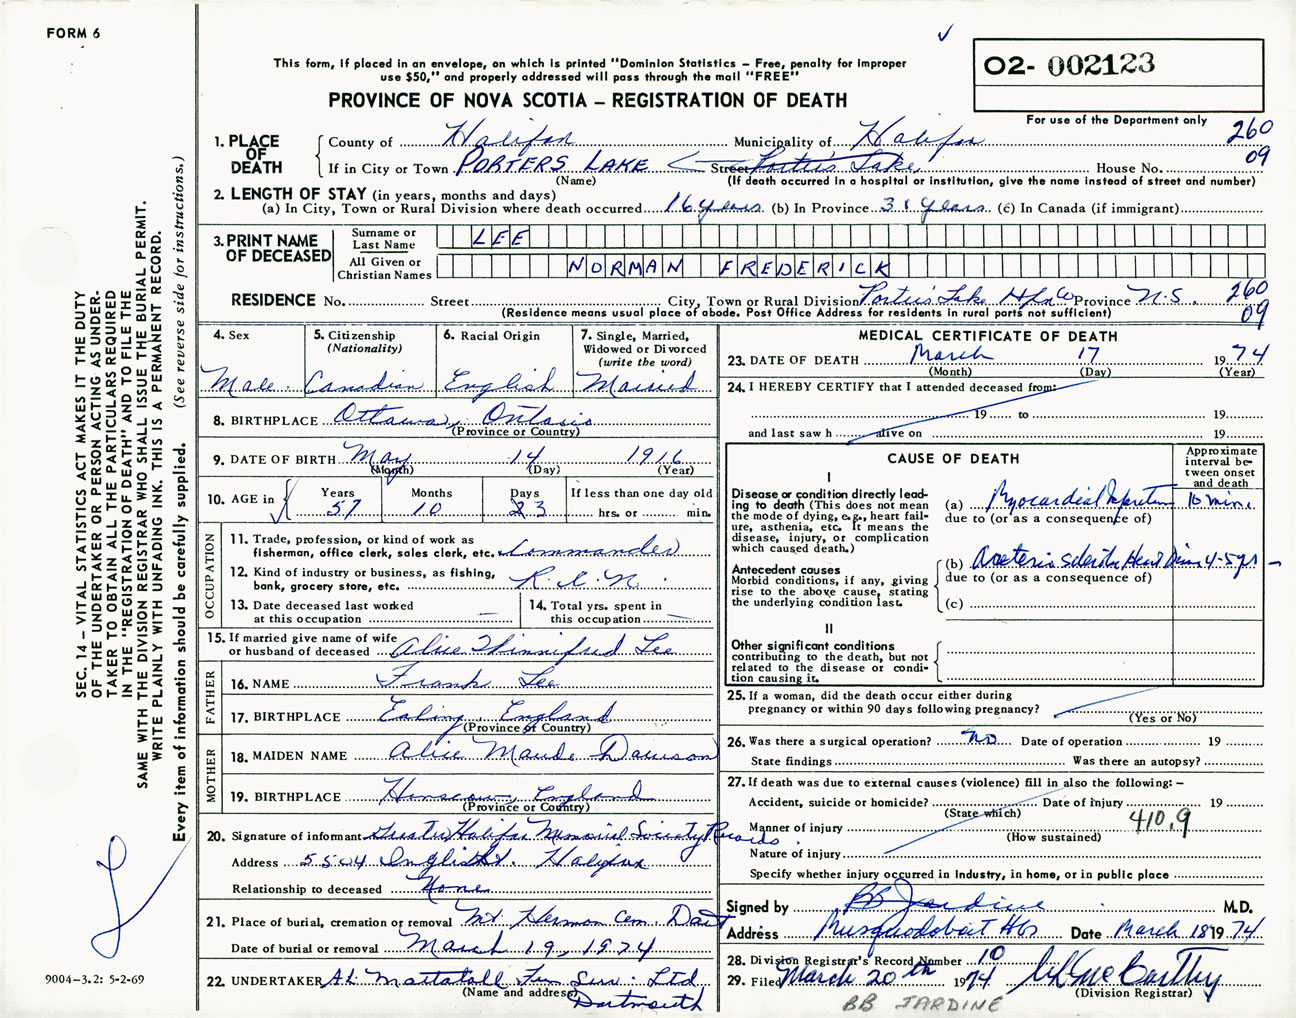 FORM 6
This form, if placed in an envelope, on which is printed "Dominion Statistics – Free, penalty for improper
use $50," and properly addressed will pass through the mail "FREE"
PROVINCE OF NOVA SCOTIA – REGISTRATION OF DEATH
02- 002123
For use of the Department only
1. PLACE OF DEATH
County of Halifax Municipality of Halifax 260
If in City or Town PORTERS LAKE Street Porter's Lake House No. 09
(Name) (If death occurred in a hospital or institution, give the name instead of street and number)
2. LENGTH OF STAY (in years, months and days)
(a) In City, Town or Rural Division where death occurred 16 years (b) In Province 38 years (c) In Canada (if immigrant)
3. PRINT NAME OF DECEASED
Surname or Last Name LEE
All Given or Christian Names NORMAN FREDERICK
RESIDENCE No. Street City, Town or Rural Division Porter's Lake Hfx Co Province N.S. 260
(Residence means usual place of abode. Post Office Address for residents in rural parts not sufficient) 09
4. Sex
Male
5. Citizenship
(Nationality)
Canadian
6. Racial Origin
English
7. Single, Married,
Widowed or Divorced
(write the word)
Married
8. BIRTHPLACE Ottawa, Ontario
(Province or Country)
9. DATE OF BIRTH May 14 1916
(Month) (Day) (Year)
10. AGE in Years Months Days If less than one day old
57 10 23 hrs. or min.
OCCUPATION
11. Trade, profession, or kind of work as
fisherman, office clerk, sales clerk, etc. Commander
12. Kind of industry or business, as fishing,
bank, grocery store, etc. R.C.N.
13. Date deceased last worked
at this occupation
14. Total yrs. spent in
this occupation
15. If married give name of wife
or husband of deceased Alice Winnifred Lee
FATHER
16. NAME Frank Lee
17. BIRTHPLACE Ealing, England
(Province or Country)
MOTHER
18. MAIDEN NAME Alice Maude Dawson
19. BIRTHPLACE England
(Province or Country)
20. Signature of informant Halifax Memorial Society Records
Address 5504 Inglis St. Halifax
Relationship to deceased None
21. Place of burial, cremation or removal Mt. Hermon Cem. Dart
Date of burial or removal March 19, 1974
22. UNDERTAKER A.L. Mattatall Fun Serv. Ltd
(Name and address) Dartmouth
MEDICAL CERTIFICATE OF DEATH
23. DATE OF DEATH March 17 1974
(Month) (Day) (Year)
24. I HEREBY CERTIFY that I attended deceased from:
19 to 19
and last saw h alive on 19
CAUSE OF DEATH
Approximate
interval be-
tween onset
and death
I
Disease or condition directly lead-
ing to death (This does not mean
the mode of dying, e.g., heart fail-
ure, asthenia, etc. It means the
disease, injury, or complication
which caused death.)
(a) Myocardial Infarction 10 min.
due to (or as a consequence of)
Antecedent causes
Morbid conditions, if any, giving
rise to the above cause, stating
the underlying condition last.
(b) Heart 4-5 yrs
due to (or as a consequence of)
(c)
II
Other significant conditions
contributing to the death, but not
related to the disease or condi-
tion causing it.
25. If a woman, did the death occur either during
pregnancy or within 90 days following pregnancy?
(Yes or No)
26. Was there a surgical operation? no Date of operation 19
State findings Was there an autopsy?
27. If death was due to external causes (violence) fill in also the following: –
Accident, suicide or homicide? Date of injury 19
(State which)
Manner of injury 410.9
(How sustained)
Nature of injury
Specify whether injury occurred in industry, in home, or in public place
Signed by BB Jardine M.D.
Address Musquodoboit Hbr Date March 18 1974
28. Division Registrar's Record Number 10
29. Filed March 20th 1974
(Division Registrar)
BB JARDINE
SEC. 14 – VITAL STATISTICS ACT MAKES IT THE DUTY
OF THE UNDERTAKER OR PERSON ACTING AS UNDER-
TAKER TO OBTAIN ALL THE PARTICULARS REQUIRED
IN THE "REGISTRATION OF DEATH" AND TO FILE THE
SAME WITH THE DIVISION REGISTRAR WHO SHALL ISSUE THE BURIAL PERMIT.
WRITE PLAINLY WITH UNFADING INK. THIS IS A PERMANENT RECORD.
Every item of information should be carefully supplied. (See reverse side for instructions.)
9004-3.2: 5-2-69